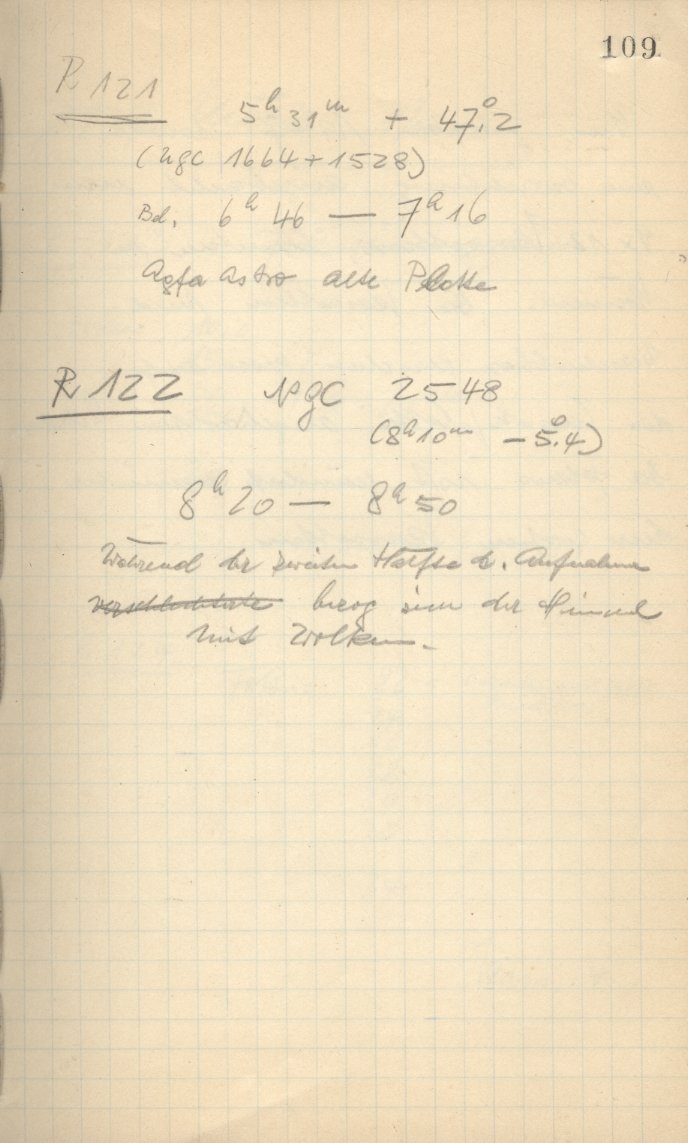 109
R 121
5ʰ 31ᵐ + 47°.2
(NGC 1664 + 1528)
Bel. 6ʰ 46 — 7ʰ 16
Agfa Astro alte Platte
R 122 NGC 2548
(8ʰ 10ᵐ - 5°.4)
8ʰ 20 — 8ʰ 50
Während der zweiten Hälfte d. Aufnahme
verschlechterte bezog sich der Himmel
mit Wolken.